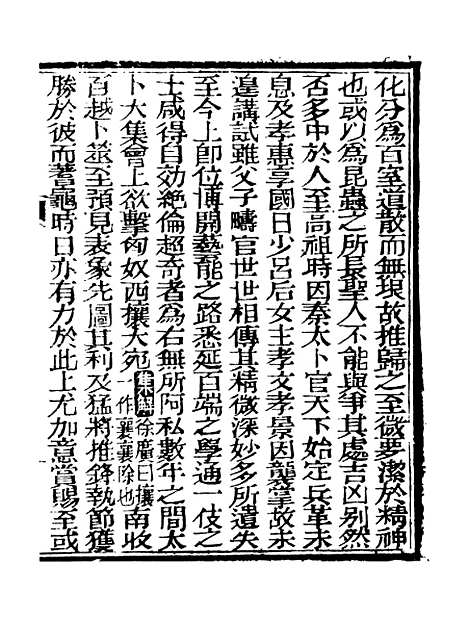 化分爲百室道散而無垠故推歸之至微要潔於精神
也或以爲昆蟲之所長聖人不能與爭其處吉凶别然
否多中於人至高祖時因秦太卜官天下始定兵革未
息及孝惠享國日少吕后女主孝文孝景因襲掌故未
遑講試雖父子疇官世世相傳其精微深妙多所遺失
至今上即位博開藝能之路悉延百端之學通一伎之
士咸得自効絶倫超奇者爲右無所阿私數年之間太
卜大集會上欲擊匈奴西攘大宛集解徐廣曰攘一作襄襄除也南收
百越卜筮至預見表象先圖其利及猛將推鋒執節獲
勝於彼而蓍龜時日亦有力於此上尤加意賞賜至或